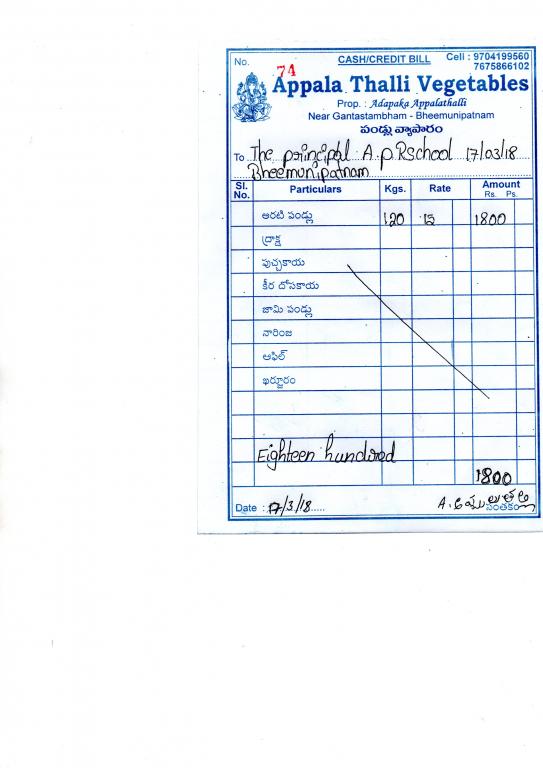 CASH/CREDIT BILL
Cell : 9704199560
7675866102
No. 74
Appala Thalli Vegetables
Prop. : Adapaka Appalathalli
Near Gantastambham - Bheemunipatnam
పండ్లు వ్యాపారం
To The principal A.p.R school 17/03/18
Bheemunipatnam
Sl. No. Particulars Kgs. Rate Amount Rs. Ps.
అరటి పండ్లు 120 15 1800
ద్రాక్ష
పుచ్చకాయ
కీర దోసకాయ
జామి పండ్లు
నారింజ
ఆఫిల్
ఖర్జూరం
Eighteen hundred
1800
Date : 17/3/18
సంతకం